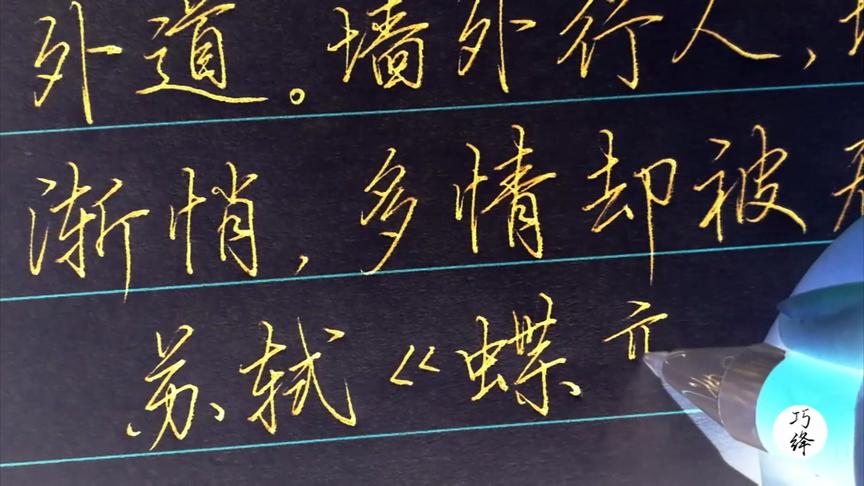 外道。墙外行人,
渐悄,多情却被
苏轼《蝶
巧绛